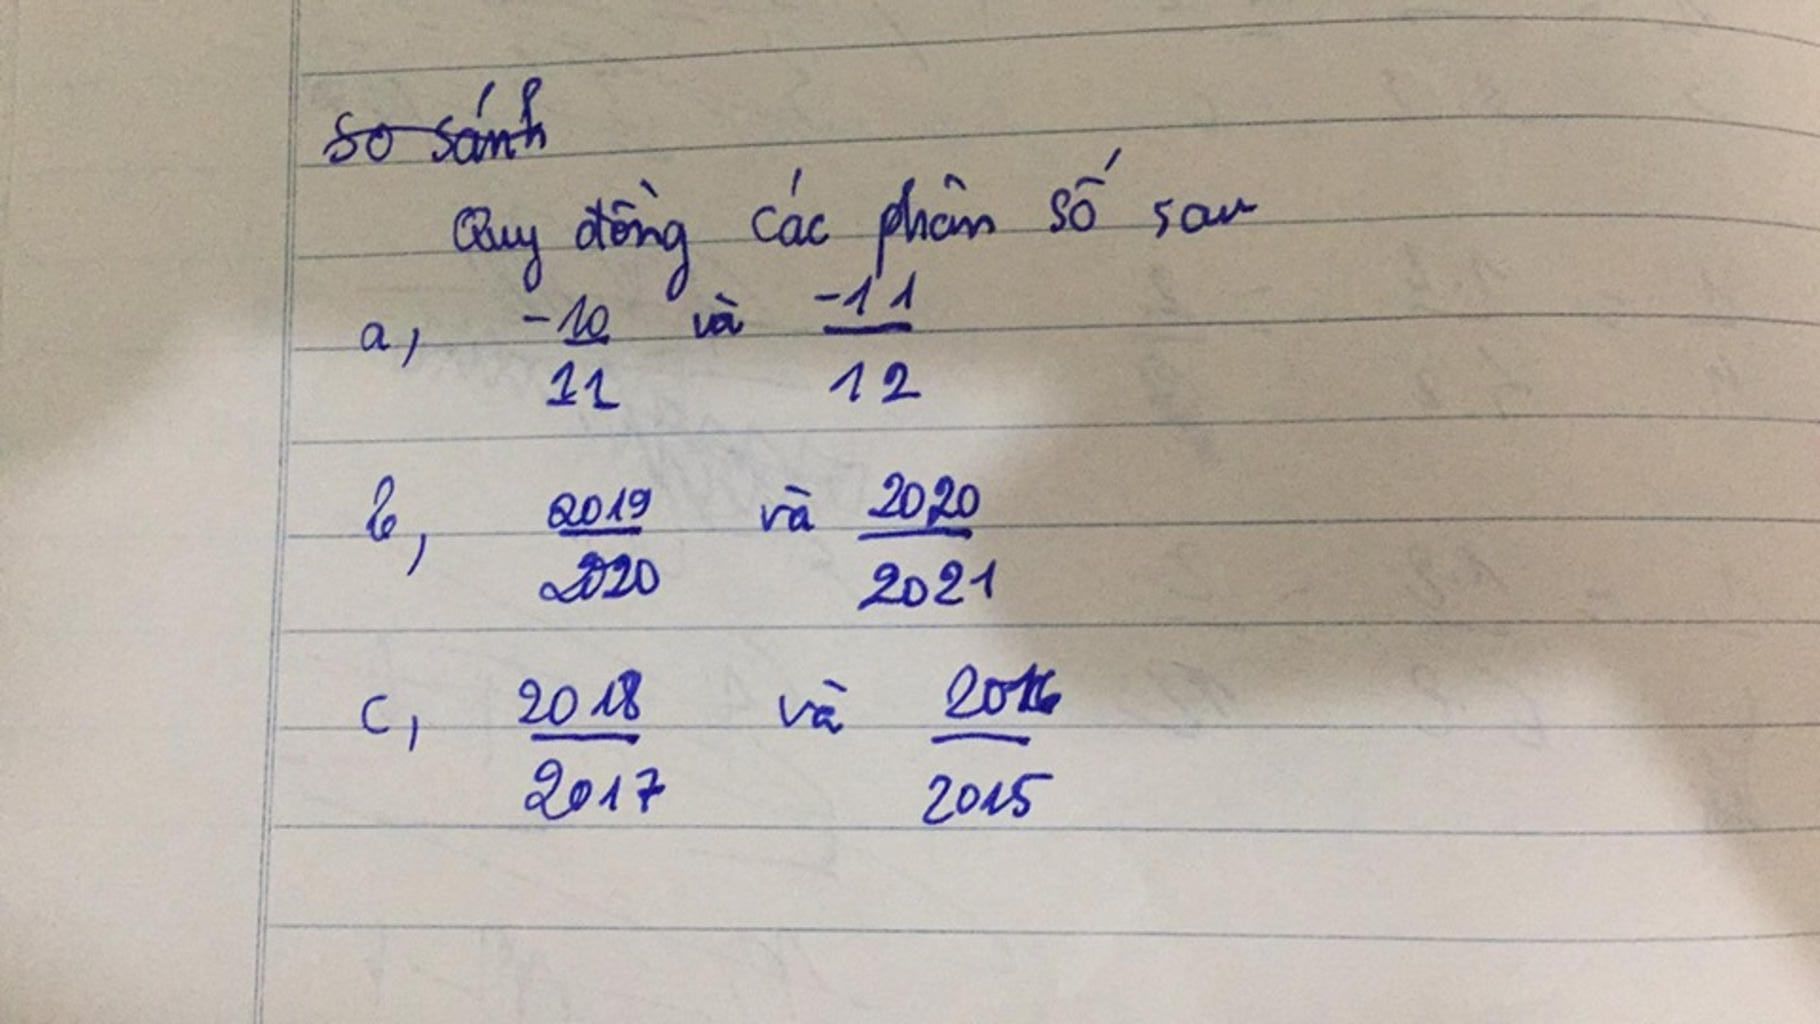 so sánh
Quy đồng các phân số sau
a, -10/11 và -11/12
b, 2019/2020 và 2020/2021
c, 2018/2017 và 2016/2015